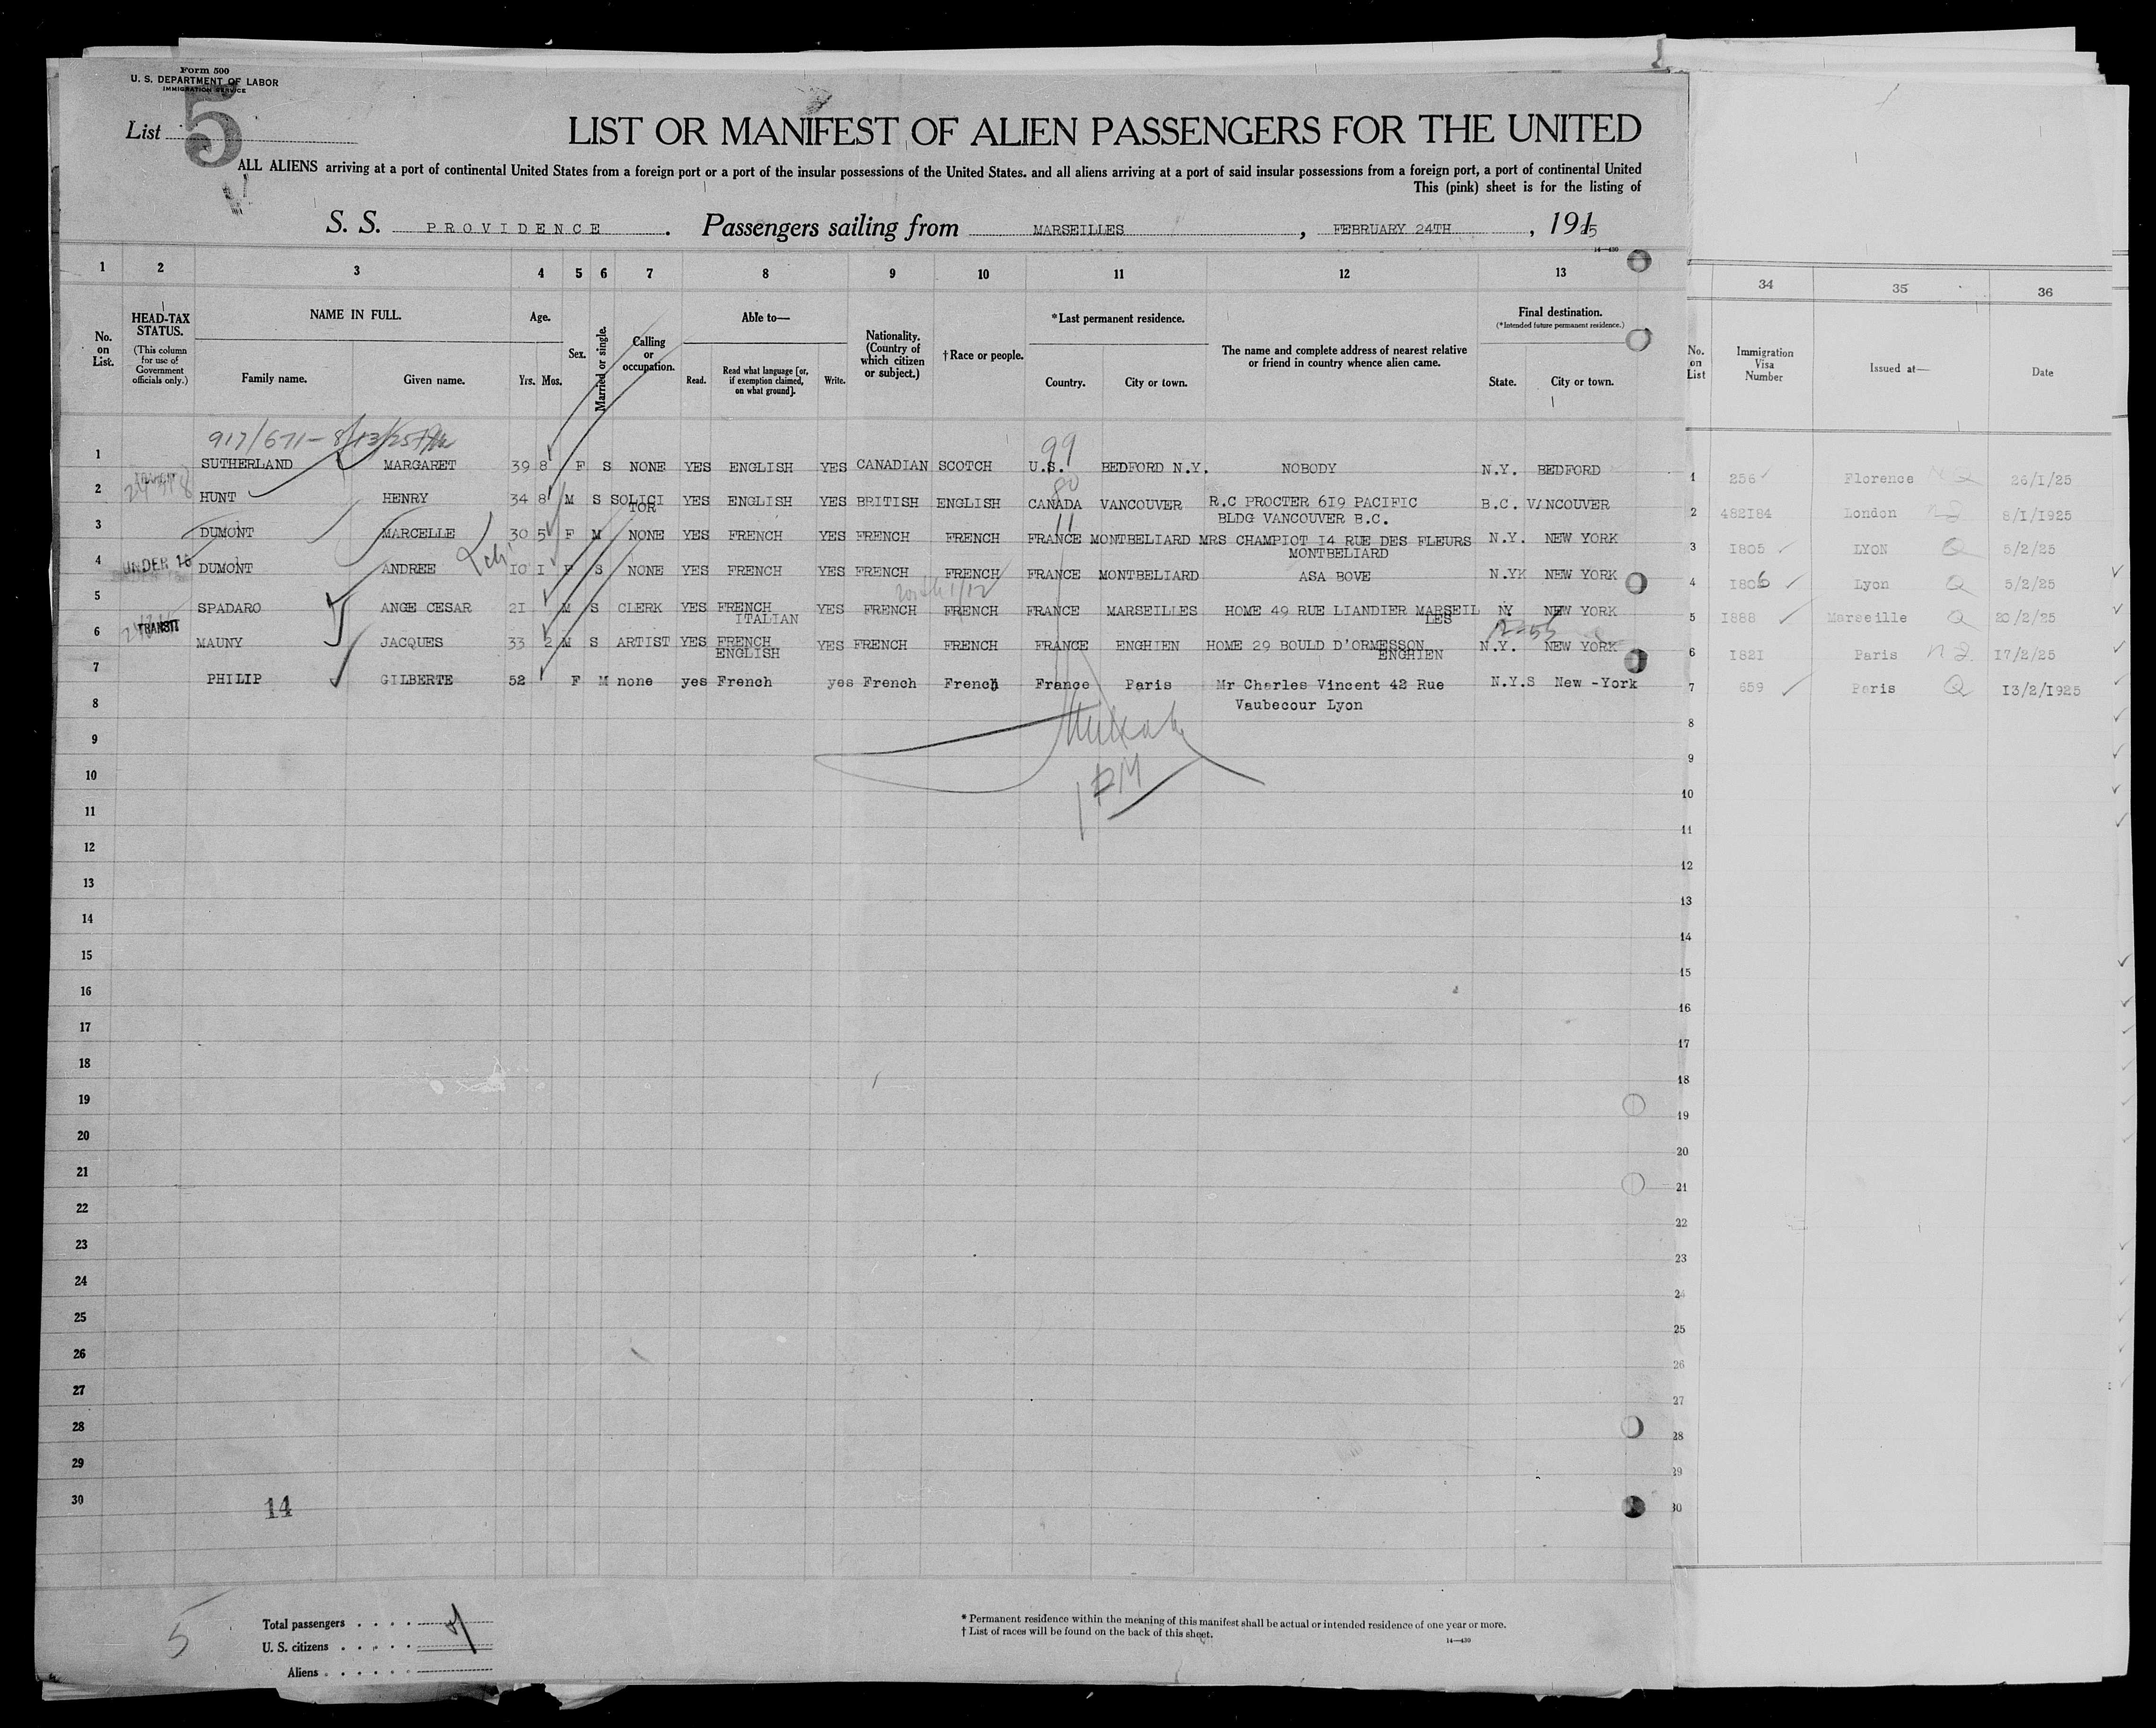 Form 500
U. S. DEPARTMENT OF LABOR
IMMIGRATION SERVICE
List 5
LIST OR MANIFEST OF ALIEN PASSENGERS FOR THE UNITED
ALL ALIENS arriving at a port of continental United States from a foreign port or a port of the insular possessions of the United States. and all aliens arriving at a port of said insular possessions from a foreign port, a port of continental United
This (pink) sheet is for the listing of
S. S. PROVIDENCE . Passengers sailing from MARSEILLES , FEBRUARY 24TH , 1925
14—430
1 2 3 4 5 6 7 8 9 10 11 12 13 34 35 36
No. on List.
HEAD-TAX STATUS.
(This column for use of Government officials only.)
NAME IN FULL.
Family name. Given name.
Age.
Yrs. Mos.
Sex.
Married or single.
Calling or occupation.
Able to—
Read. Read what language [or, if exemption claimed, on what ground]. Write.
Nationality. (Country of which citizen or subject.)
†Race or people.
*Last permanent residence.
Country. City or town.
The name and complete address of nearest relative or friend in country whence alien came.
Final destination.
(*Intended future permanent residence.)
State. City or town.
No. on List
Immigration Visa Number
Issued at—
Date
917/671- 8/13/25
99
1 SUTHERLAND MARGARET 39 8 F S NONE YES ENGLISH YES CANADIAN SCOTCH U.S. BEDFORD N.Y. NOBODY N.Y. BEDFORD 1 256 Florence 26/I/25
TRANSIT
80
2 HUNT HENRY 34 8 M S SOLICI YES ENGLISH YES BRITISH ENGLISH CANADA VANCOUVER R.C PROCTER 6I9 PACIFIC B.C. VANCOUVER 2 482I84 London 8/I/1925
TOR BLDG VANCOUVER B.C.
11
3 DUMONT MARCELLE 30 5 F M NONE YES FRENCH YES FRENCH FRENCH FRANCE MONTBELIARD MRS CHAMPIOT I4 RUE DES FLEURS N.Y. NEW YORK 3 I805 LYON Q 5/2/25
MONTBELIARD
4 UNDER 16 DUMONT ANDREE IO I F S NONE YES FRENCH YES FRENCH FRENCH FRANCE MONTBELIARD ASA BOVE N.YK NEW YORK 4 I806 Lyon Q 5/2/25
5 SPADARO ANGE CESAR 2I M S CLERK YES FRENCH YES FRENCH FRENCH FRANCE MARSEILLES HOME 49 RUE LIANDIER MARSEIL NY NEW YORK 5 I888 Marseille Q 20/2/25
ITALIAN LES
TRANSIT
6 MAUNY JACQUES 33 2 M S ARTIST YES FRENCH YES FRENCH FRENCH FRANCE ENGHIEN HOME 29 BOULD D'ORMESSON N.Y. NEW YORK 6 I82I Paris 17/2/25
ENGLISH ENGHIEN
7 PHILIP GILBERTE 52 F M none yes French yes French French France Paris Mr Charles Vincent 42 Rue N.Y.S New -York 7 659 Paris Q I3/2/1925
Vaubecour Lyon
8 8
9 9
10 10
11 11
12 12
13 13
14 14
15 15
16 16
17 17
18 18
19 19
20 20
21 21
22 22
23 23
24 24
25 25
26 26
27 27
28 28
29 29
30 30
14
5
Total passengers
U. S. citizens
Aliens
* Permanent residence within the meaning of this manifest shall be actual or intended residence of one year or more.
† List of races will be found on the back of this sheet.
14—430